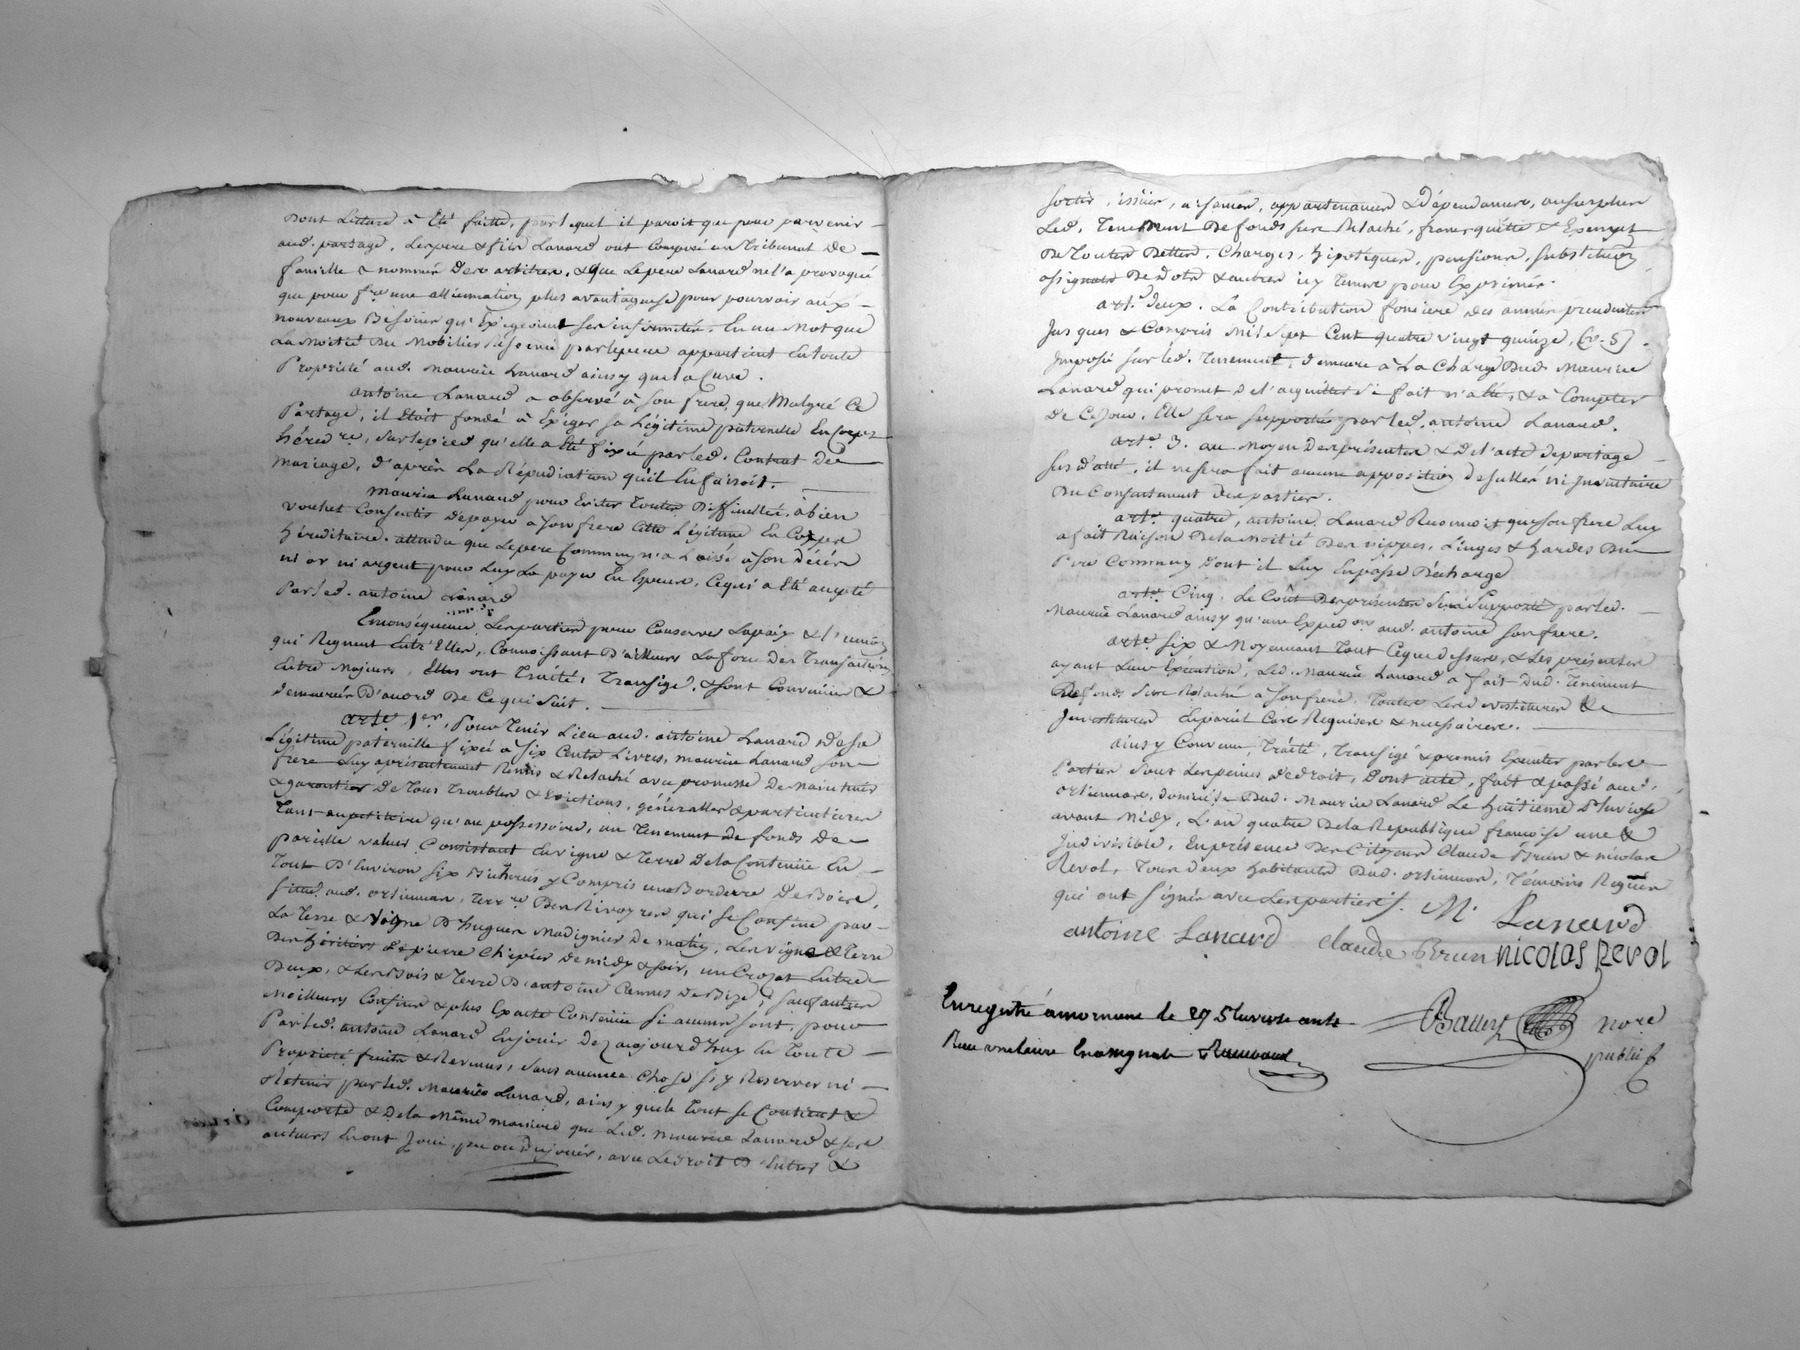 Dont Lecture à Eté faitte, par lequel il paroit que pour parvenir
aud. partage, Les pere & fils Lanard ont Composé un Tribunal De
famille & nommés Des arbitres, & que Le pere Lanard ne l'a provoqué
que pour fre une alliennation plus avantageuse pour pourvoir aux
nouveaux Besoins qu'Exigeoient ses infirmités. En un Mot que
La Moitié Du Mobilier Réservé par le pere appartient En toute
Propriété aud. Maurice Lanard ainsy que la Cuve.
antoine Lanard a observé à son frere que Malgré Ce
Partage, il Etoit fondé à Exiger sa Légitime paternelle En Corps
héred.re, sur le pied qu'elle a Eté fixée par led. Contrat De
Mariage, d'après La Répudiation qu'il En faisoit.
Maurice Lanard pour Eviter Toutes Difficultés, à bien
voulut Consentir De payer à son frere Cette Légitime En Corps
héréditaire, attendu que Le pere Commun n'a Laissé à Son Décès
ni or ni argent pour Luy La payer En Espece, Ce qui a Eté accepté
Par led. antoine Lanard
Enconséquence, Les parties pour Conserver La paix & l'union
qui Regnent Entr'Elles, Connoissant D'ailleurs La force Des Transactions
Entre Majeurs, Elles ont Traité, Transigé, & sont Convenües &
demeurées D'acord De Ce qui Suit.
arte. 1er, Pour Tenir Lieu aud. antoine Lanard De sa
Légitime paternelle fixée à Six Cents Livres, Maurice Lanard son
frere Luy a présentement Remis & Relaché avec promesse De Maintenir
& garantir De Tous Troubles & Evictions, géneralles & particulieres
Tant au petitoire qu'au possessoire, un Tenement De fonds De
pareille valeur Consistant En vigne & Terre De la Contenüe En
Tout D'Environ Six Bicherées y Compris une Borderre De Bois,
situé aud. orliennas, Terr.re Des Rivoyres qui se Confine par
La Terre & Vigne D'hugues Madignier De matin, Les vigne & Terre
Des héritiers De pierre Chipier De midy & soir, un Crozat Entre
Deux, & Les Bois & Terre D'antoine Cannes De Bize, Sauf autres
Meilleurs Confins & plus Exacte Contenüe Si aucuns sont, pour
Par led. antoine Lanard En jouir De z'aujourd'huy En Toute
Propriété fruits & Revenus, Sans aucune Chose s'y Reserver ni
Retenir par led. Maurice Lanard, ainsy que le Tout se Contient &
Comporte & De la Même maniere que Led. Maurice Lanard & ses
auteurs En ont Joui, pu ou Du jouir, avec Le droit D'Entrer &
sortir, issües, aisances, appartenances & Dépendances, au surplus
Led. Tenement De fonds sera Relaché, franc quitte & Exempt
De Toutes Dettes, Charges, hipoteques, pensions, Substitution
assignats De Dots & autres icy Tenues pour Exprimés.
arte. Deux. La Contribution fonciere Des années précedentes
Jusques & Compris Mil Sept Cent quatre vingt quinze, (v. S)
Imposée sur led. Tenement, Demeure à La Charge Dud. Maurice
Lanard qui promet De l'acquitter si fait n'a Eté, & à Compter
De Ce Jour, Elle sera Supportée par led. antoine Lanard.
arte. 3. au Moyen Des présentes & De l'acte De partage
sus Daté, il ne sera fait aucune apposition De scellés ni Inventaire
Du Consentement Des parties.
arte. quatre, antoine Lanard Reconnoit que Son frere Luy
a fait Raison De la Moitié Des nippes, Linges & hardes Du
Pere Commun Dont il Luy En passe Décharge
arte. Cinq. Le Coût Des présentes Sera Supporté par led.
Maurice Lanard ainsy qu'une Exped.on aud. antoine son frere.
arte. Six & Moyennant Tout Ce que Dessus, & Les présentes
ayant Leur Exécution, Led. Maurice Lanard a fait Dud. Tenement
De fonds Sere Relaché à Son frere, Toutes Les Devestitures De
Investitures En pareil Cas Requises & necessaires.
ainsy Convenu, Traité, Transigé & promis Executer par les
Parties Sous Les peines De droit, Dont acte, fait & passé aud.
orliennas, Domicile Dud. Maurice Lanard Le huitieme Nivose
avant Midy, L'an quatre De la République françoise une &
Indivisible, En présence Des Citoyens Claude Brun & nicolas
Revol, Tous Deux habitants Dud. orliennas, Témoins Requis
qui ont Signés avec Les parties./.
M. Lanard
antoine Lanard Claude Brun nicolas Revol
Enregistré à mornant le 27 nivose an 4
Reçu en assignats
not.re
public